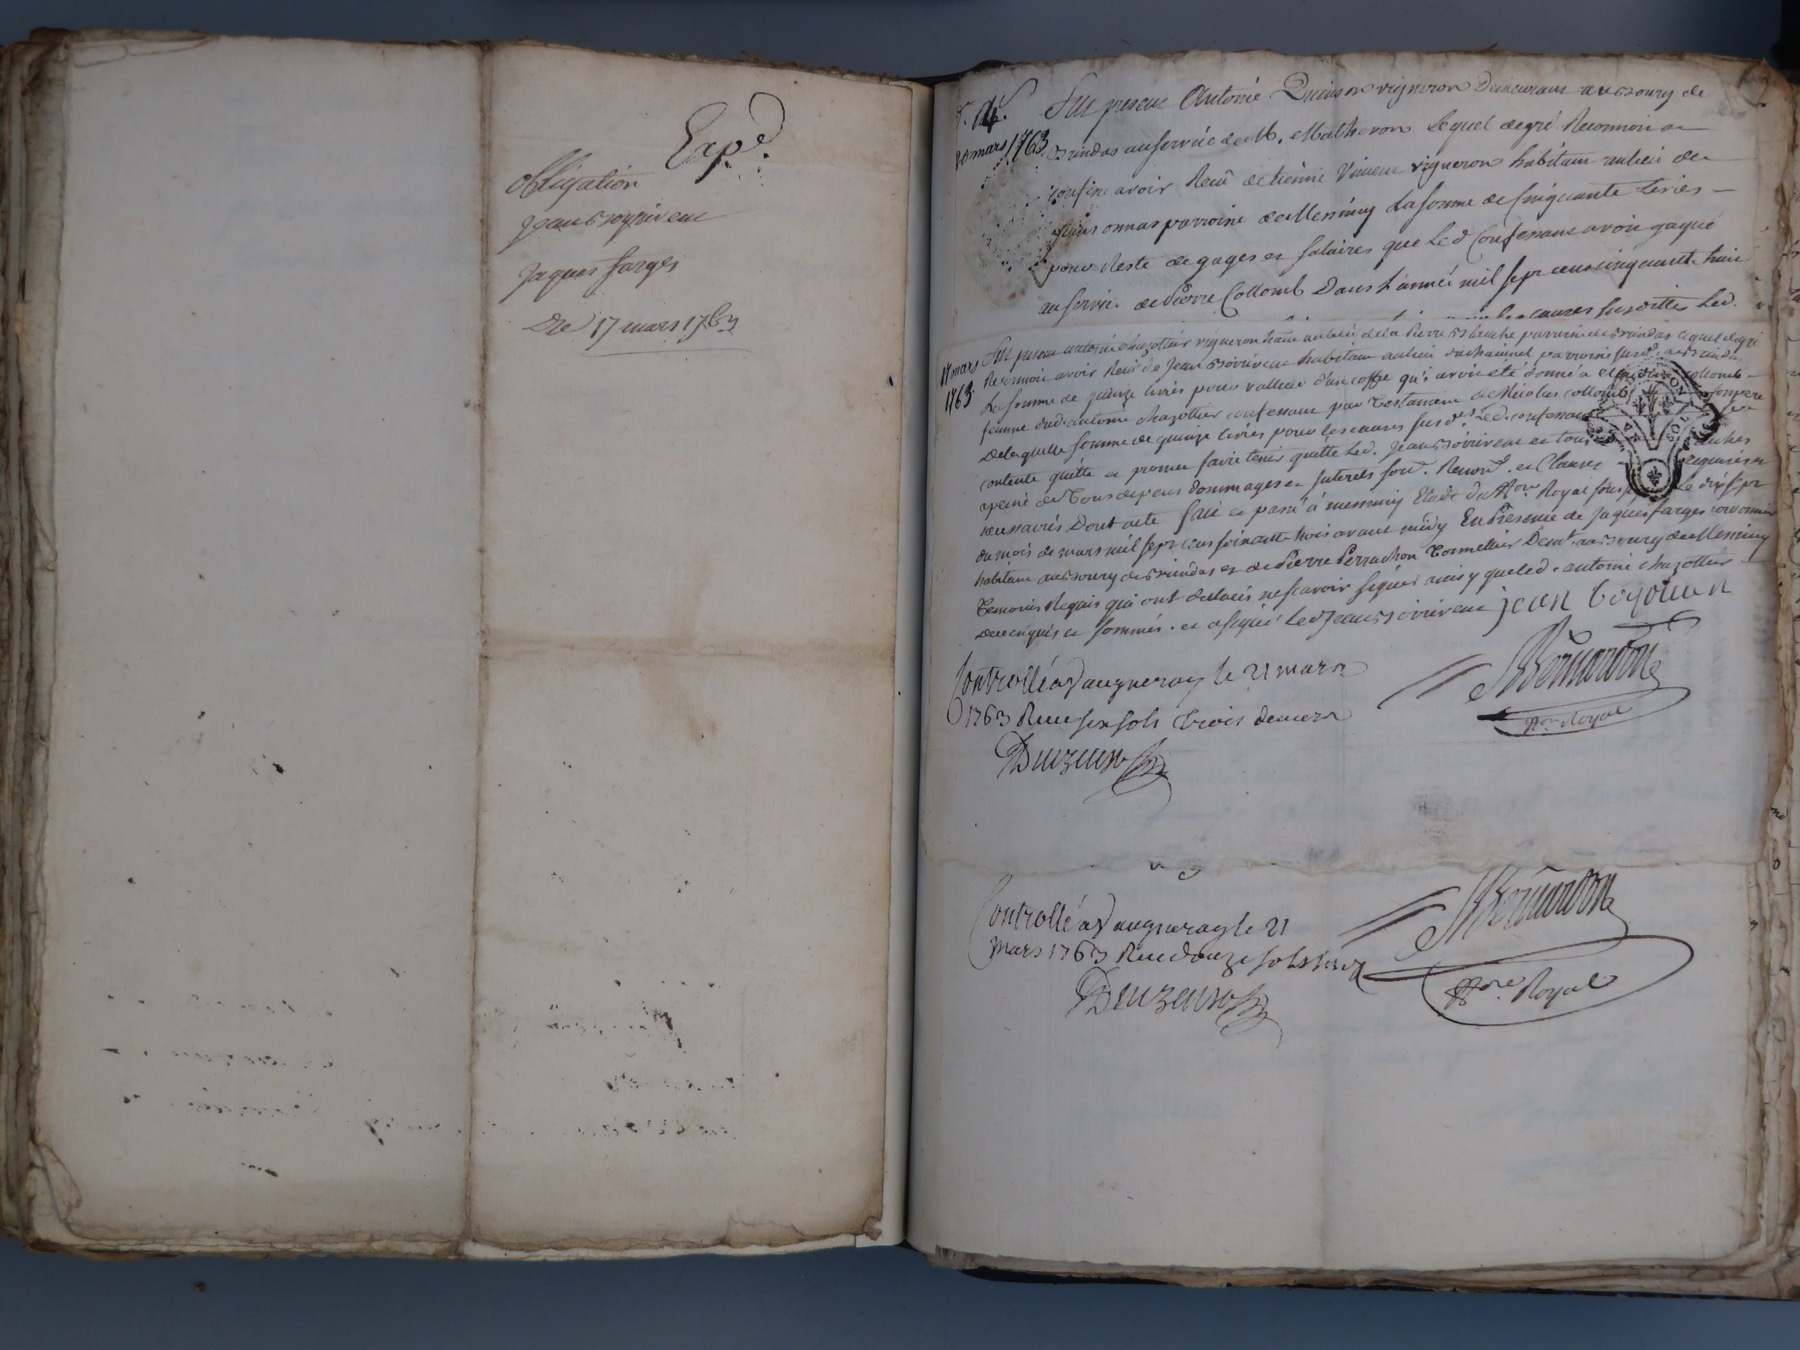 Exp.d
obligation
jean
jaques farges
Du 17 mars 1763
20 mars 1763
Fut present Antoine vigneron demeurant au bourg de
Brindas au service de M. Matheron lequel de gré Reconnoit et
confesse avoir Receu de vigneron habitant au lieu de
parroisse de Messimy La somme de Cinquante Livres
pour Reste de gages et salaires que Led Confessant avoit gagné
au service de Pierre Collomb Dans L'année mil sept cent cinquante huit
les causes susdittes Led.
17 mars
1763
Fut present antoine chazottier vigneron habitant au lieu de la Pierre Blanche parroisse de Brindas lequel de gré
Reconnoit avoir Receu de Jean habitant au lieu du parroisse susd. de Brindas
La somme de quinze livres pour valleur d'un coffre qui avoit eté donné a collomb
femme dud. antoine chazottier confessant par Testament de Nicolas collomb son pere
De laquelle somme de quinze livres pour les causes susd.es Led. confessant
contente quitte et promet faire tenir quitte Led. Jean et tous autres
a peine de Tous depens dommages et interets sous. Renon. et Clauses requises et
necessaires Dont acte fait et passé à messimy Etude du No.re Royal Le dix sept
du mois de mars mil sept cent soixante trois avant midy En Presence de Jaques farges cordonnier
habitant au Bourg de Brindas et de Pierre Perrachon Tonnellier Demt. au Bourg de Messimy
Temoins Requis qui ont declaré ne scavoir signer ainsy que led. antoine chazottier
de ce enquis et sommés. et a signé Led Jean jean
Controllé a Vaugneray le 21 mars
1763 Receu six sols trois deniers
Bernardon
No.re Royal
Controllé a Vaugneray le 21
mars 1763 Receu douze sols
Bernardon
No.re Royal